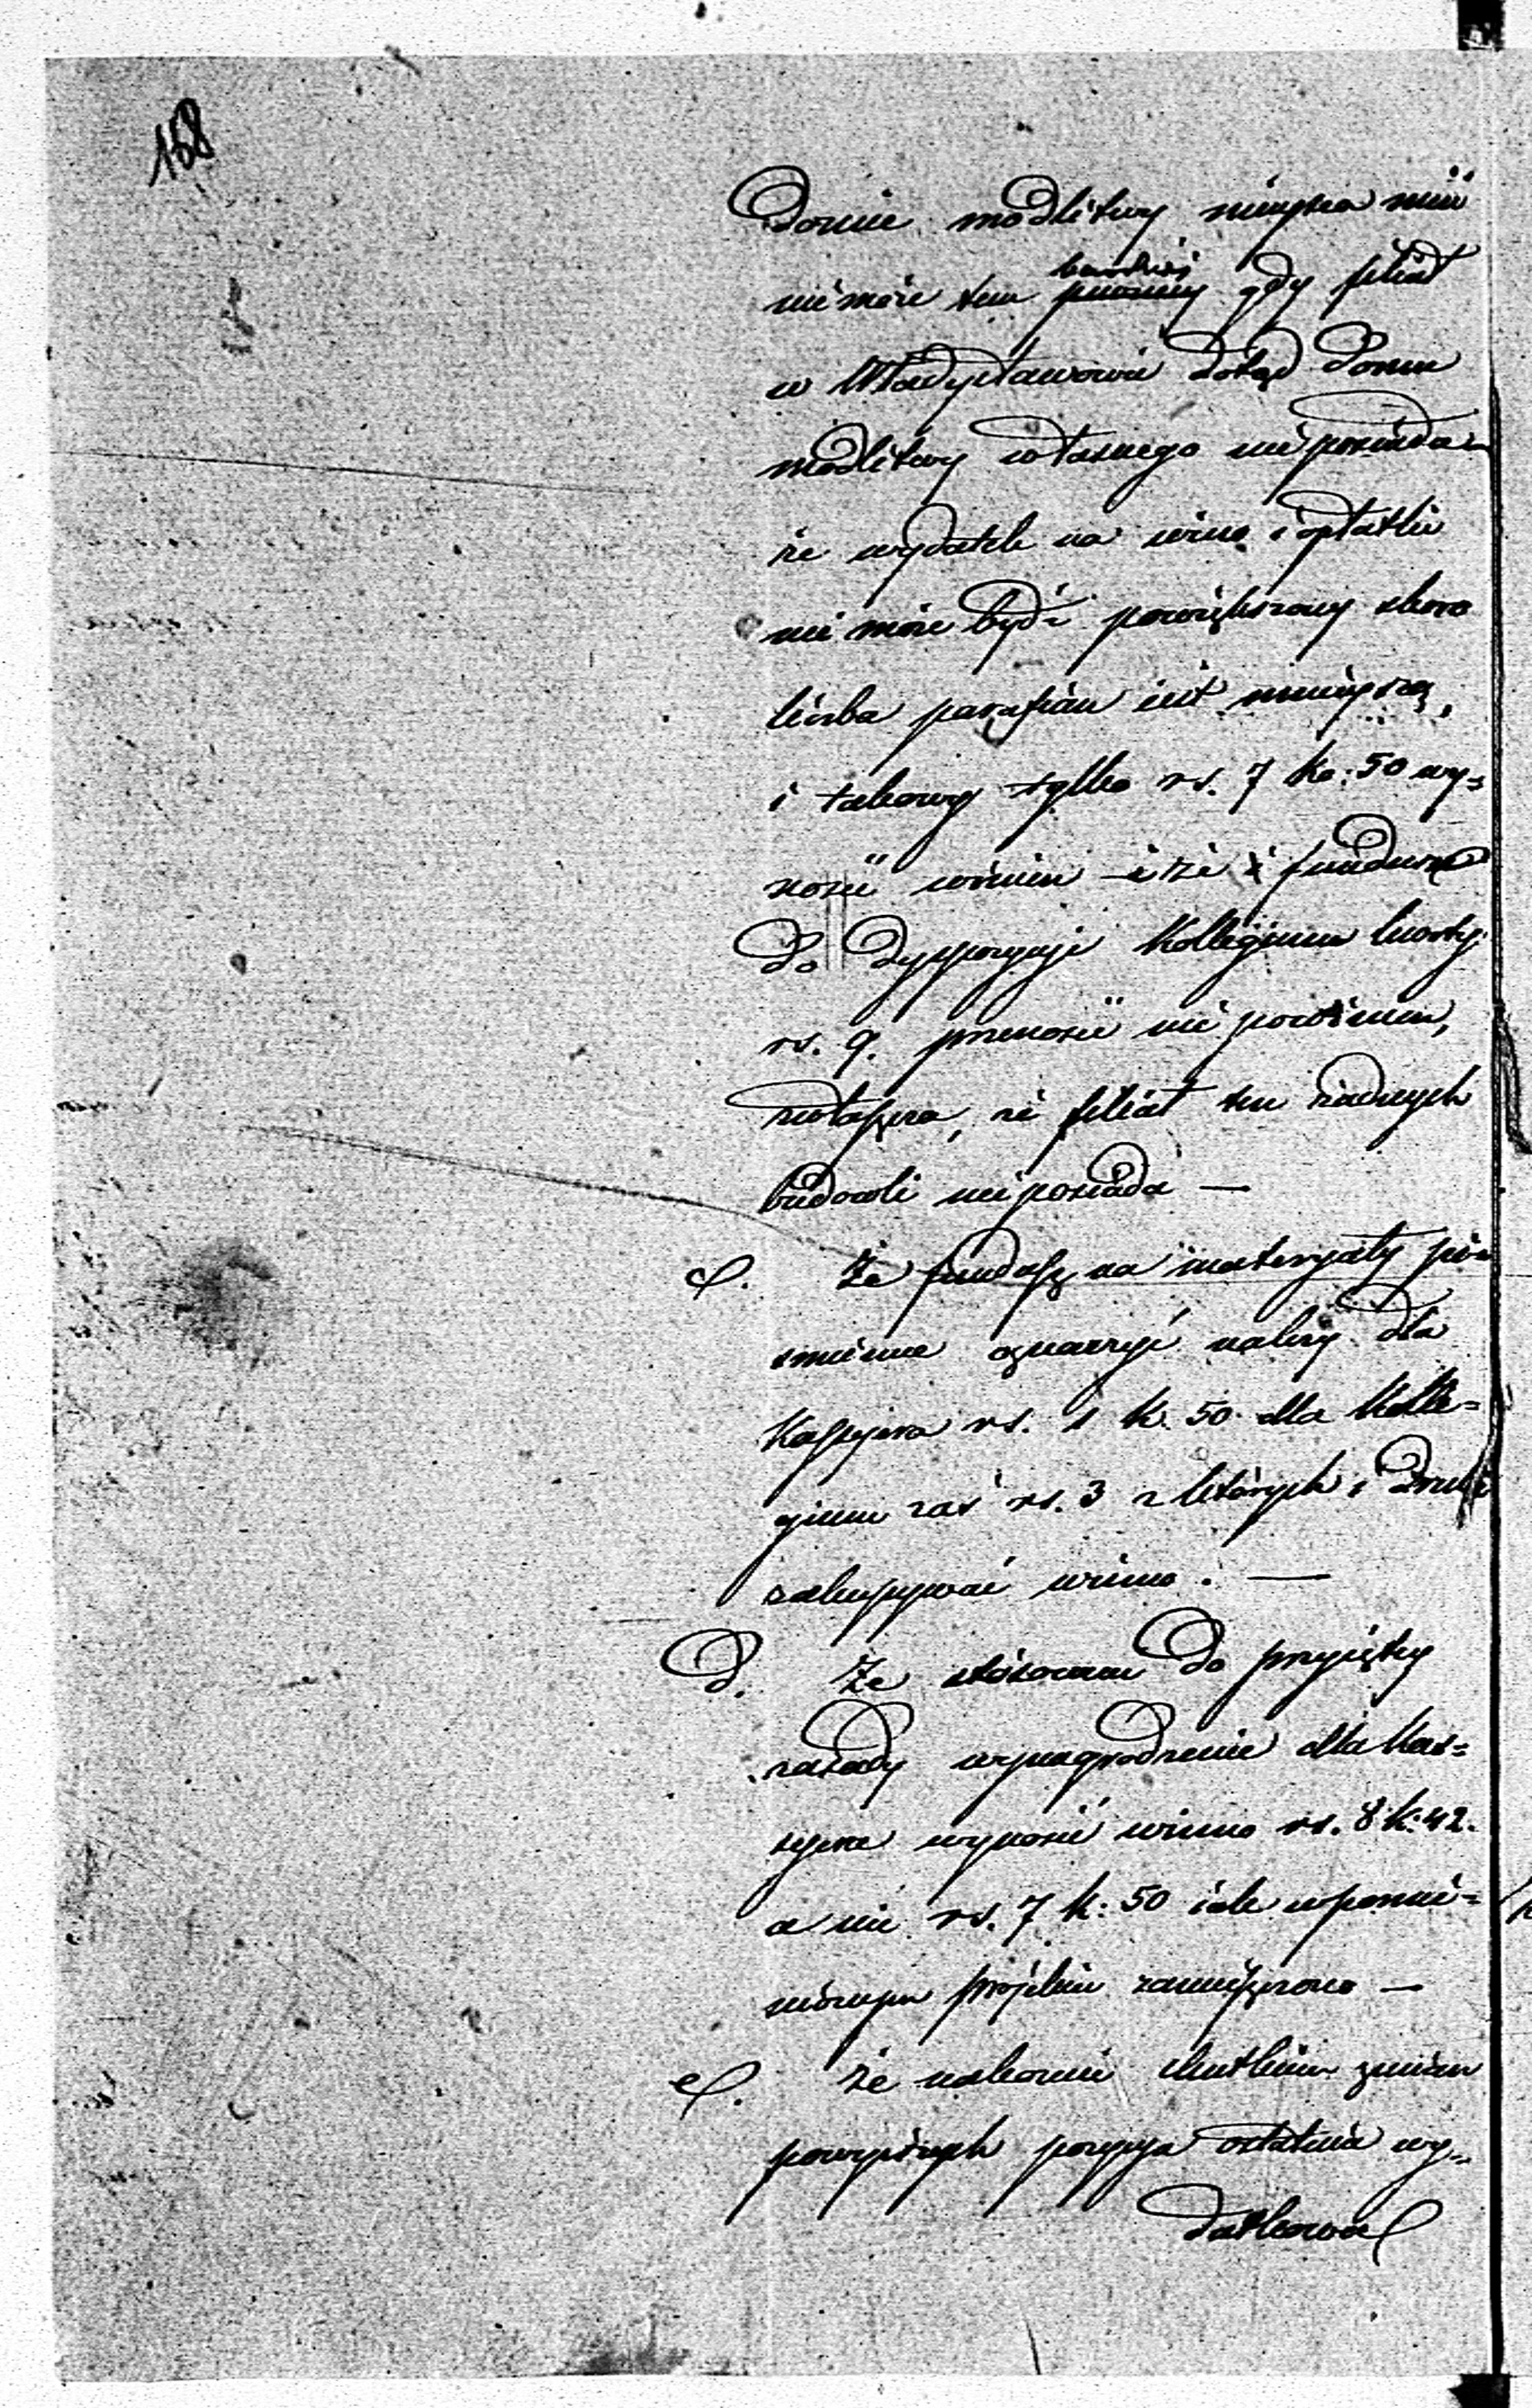 158
Domie modlitwy miejsca mieć
nie może tem bardziej gdy filiał
w Władysławowie dotąd Domu
modlitwy własnego nie posiada
że wydatek na wino i opłatki
nie może bydź powiększony skoro
liczba parafian jest mniejszą,
i takowy tylko rs. 7 ko: 50 wy=
nosić winien i że i fundusz
do dyspozycyi Kollegium kościel.
rs. 9. przenosić nie powinien,
zwłaszcza, że filiał ten żadnych
budowli nie posiada —
c. Że fundusz na materyały piś
mienne oznaczyć należy dla
Kassyera rs. 1 k. 50 dla Kolle=
gium zaś rs. 3 z których i druki
zakupywać winno. —
d. Że stósownie do przyjętej
zasady wynagrodzenie dla Kas=
syera wynosić winno rs. 8 k. 42.
a nie rs. 7 k: 50 jak w pomie=
nionym projekcie zamieszczono —
e. Że nakoniec skutkiem zmian
powyższych pozycya ostatnia wy=
datkowa